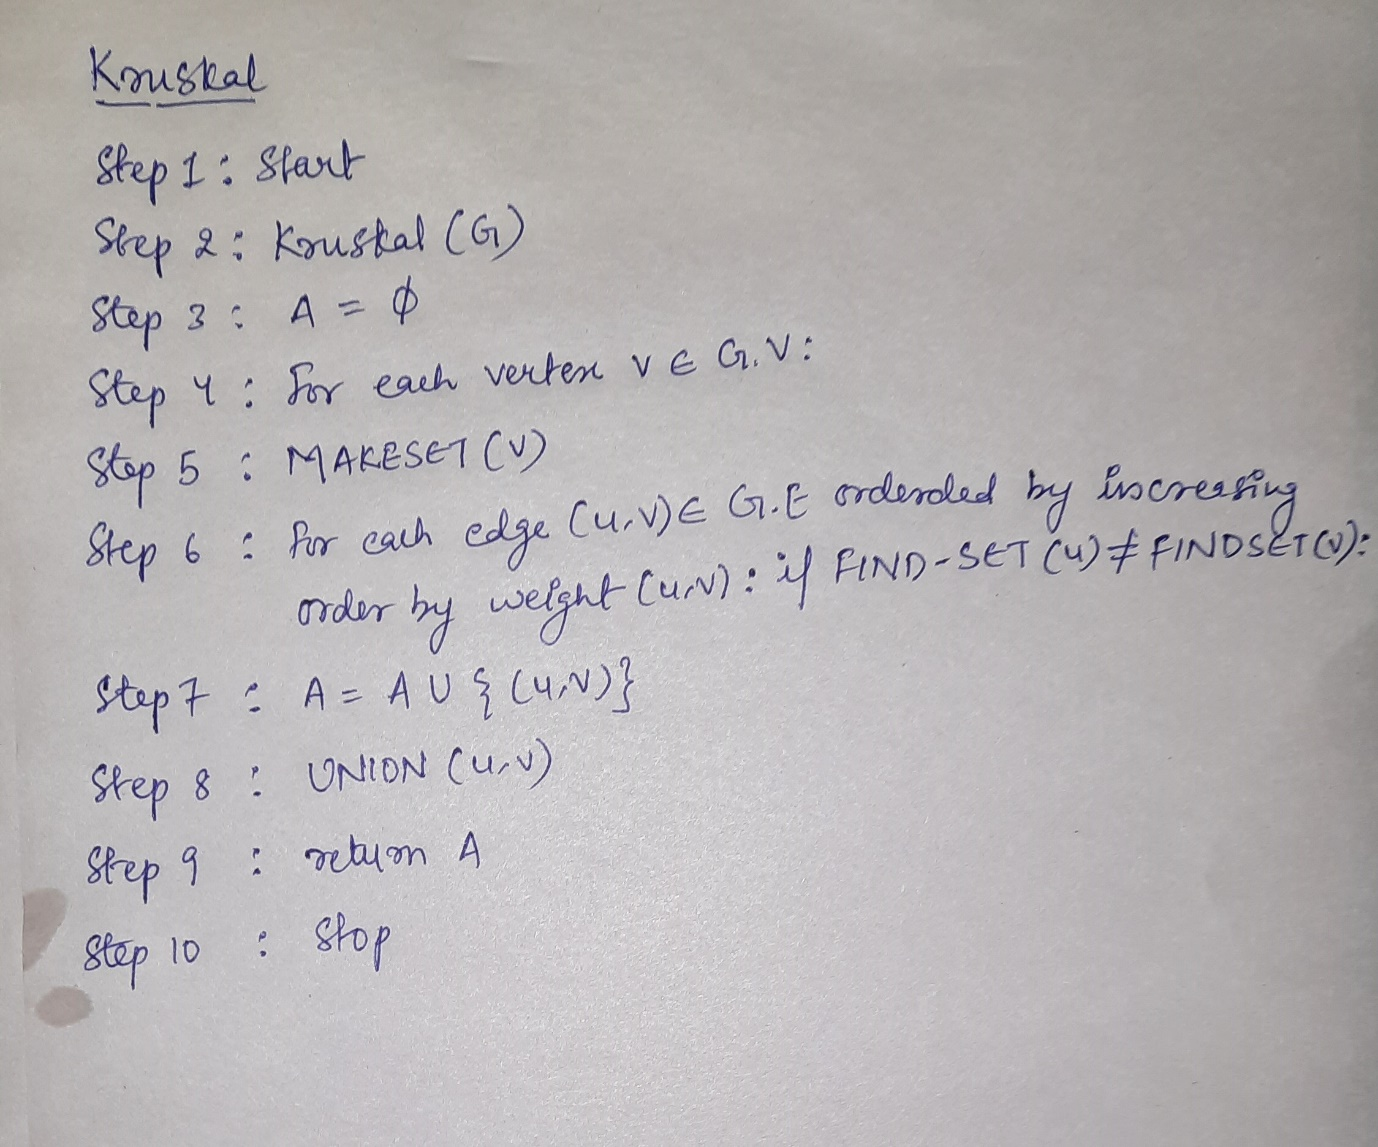 Kruskal
Step 1 : Start
Step 2 : Kruskal (G)
Step 3 : A = ϕ
Step 4 : for each vertex v ∈ G.V:
Step 5 : MAKESET (V)
Step 6 : for each edge (u,v) ∈ G.E orderded by increasing
order by weight (u,v) : if FIND-SET (u) ≠ FINDSET (v):
Step 7 : A = A ∪ {(u,v)}
Step 8 : UNION (u,v)
Step 9 : return A
Step 10 : Stop